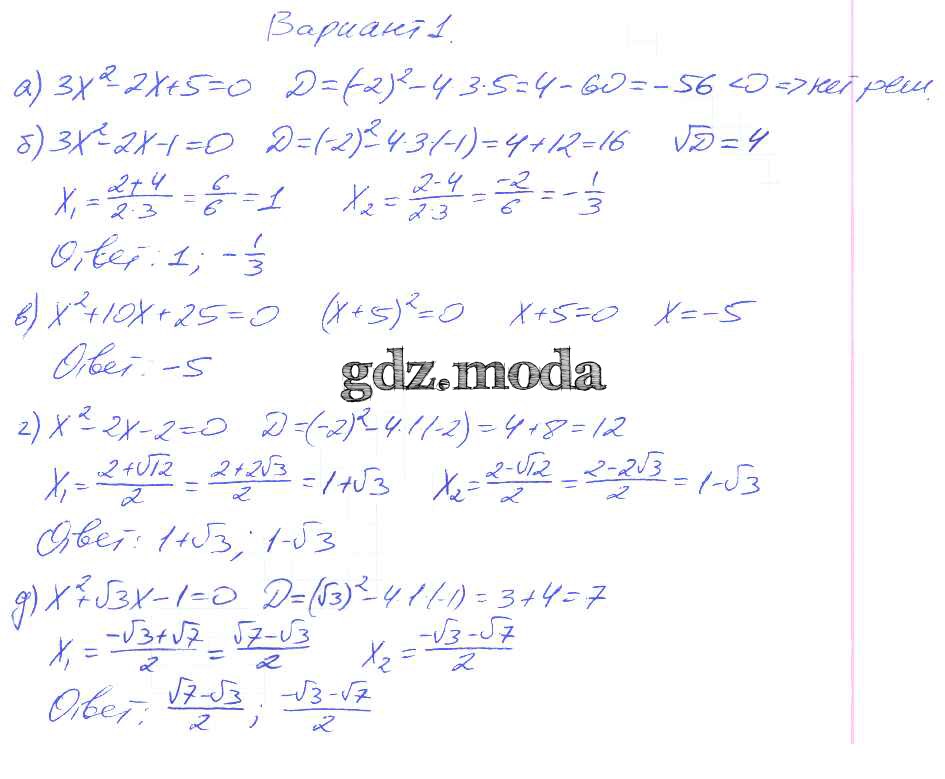 Вариант 1.
а) 3x² - 2x + 5 = 0 D = (-2)² - 4·3·5 = 4 - 60 = -56 < 0 => нет реш.
б) 3x² - 2x - 1 = 0 D = (-2)² - 4·3·(-1) = 4 + 12 = 16 √D = 4
x₁ = (2+4)/(2·3) = 6/6 = 1 x₂ = (2-4)/(2·3) = -2/6 = -1/3
Ответ: 1; -1/3
в) x² + 10x + 25 = 0 (x+5)² = 0 x + 5 = 0 x = -5
Ответ: -5
gdz.moda
г) x² - 2x - 2 = 0 D = (-2)² - 4·1·(-2) = 4 + 8 = 12
x₁ = (2+√12)/2 = (2+2√3)/2 = 1+√3 x₂ = (2-√12)/2 = (2-2√3)/2 = 1-√3
Ответ: 1+√3; 1-√3
д) x² + √3x - 1 = 0 D = (√3)² - 4·1·(-1) = 3 + 4 = 7
x₁ = (-√3+√7)/2 = (√7-√3)/2 x₂ = (-√3-√7)/2
Ответ: (√7-√3)/2; (-√3-√7)/2